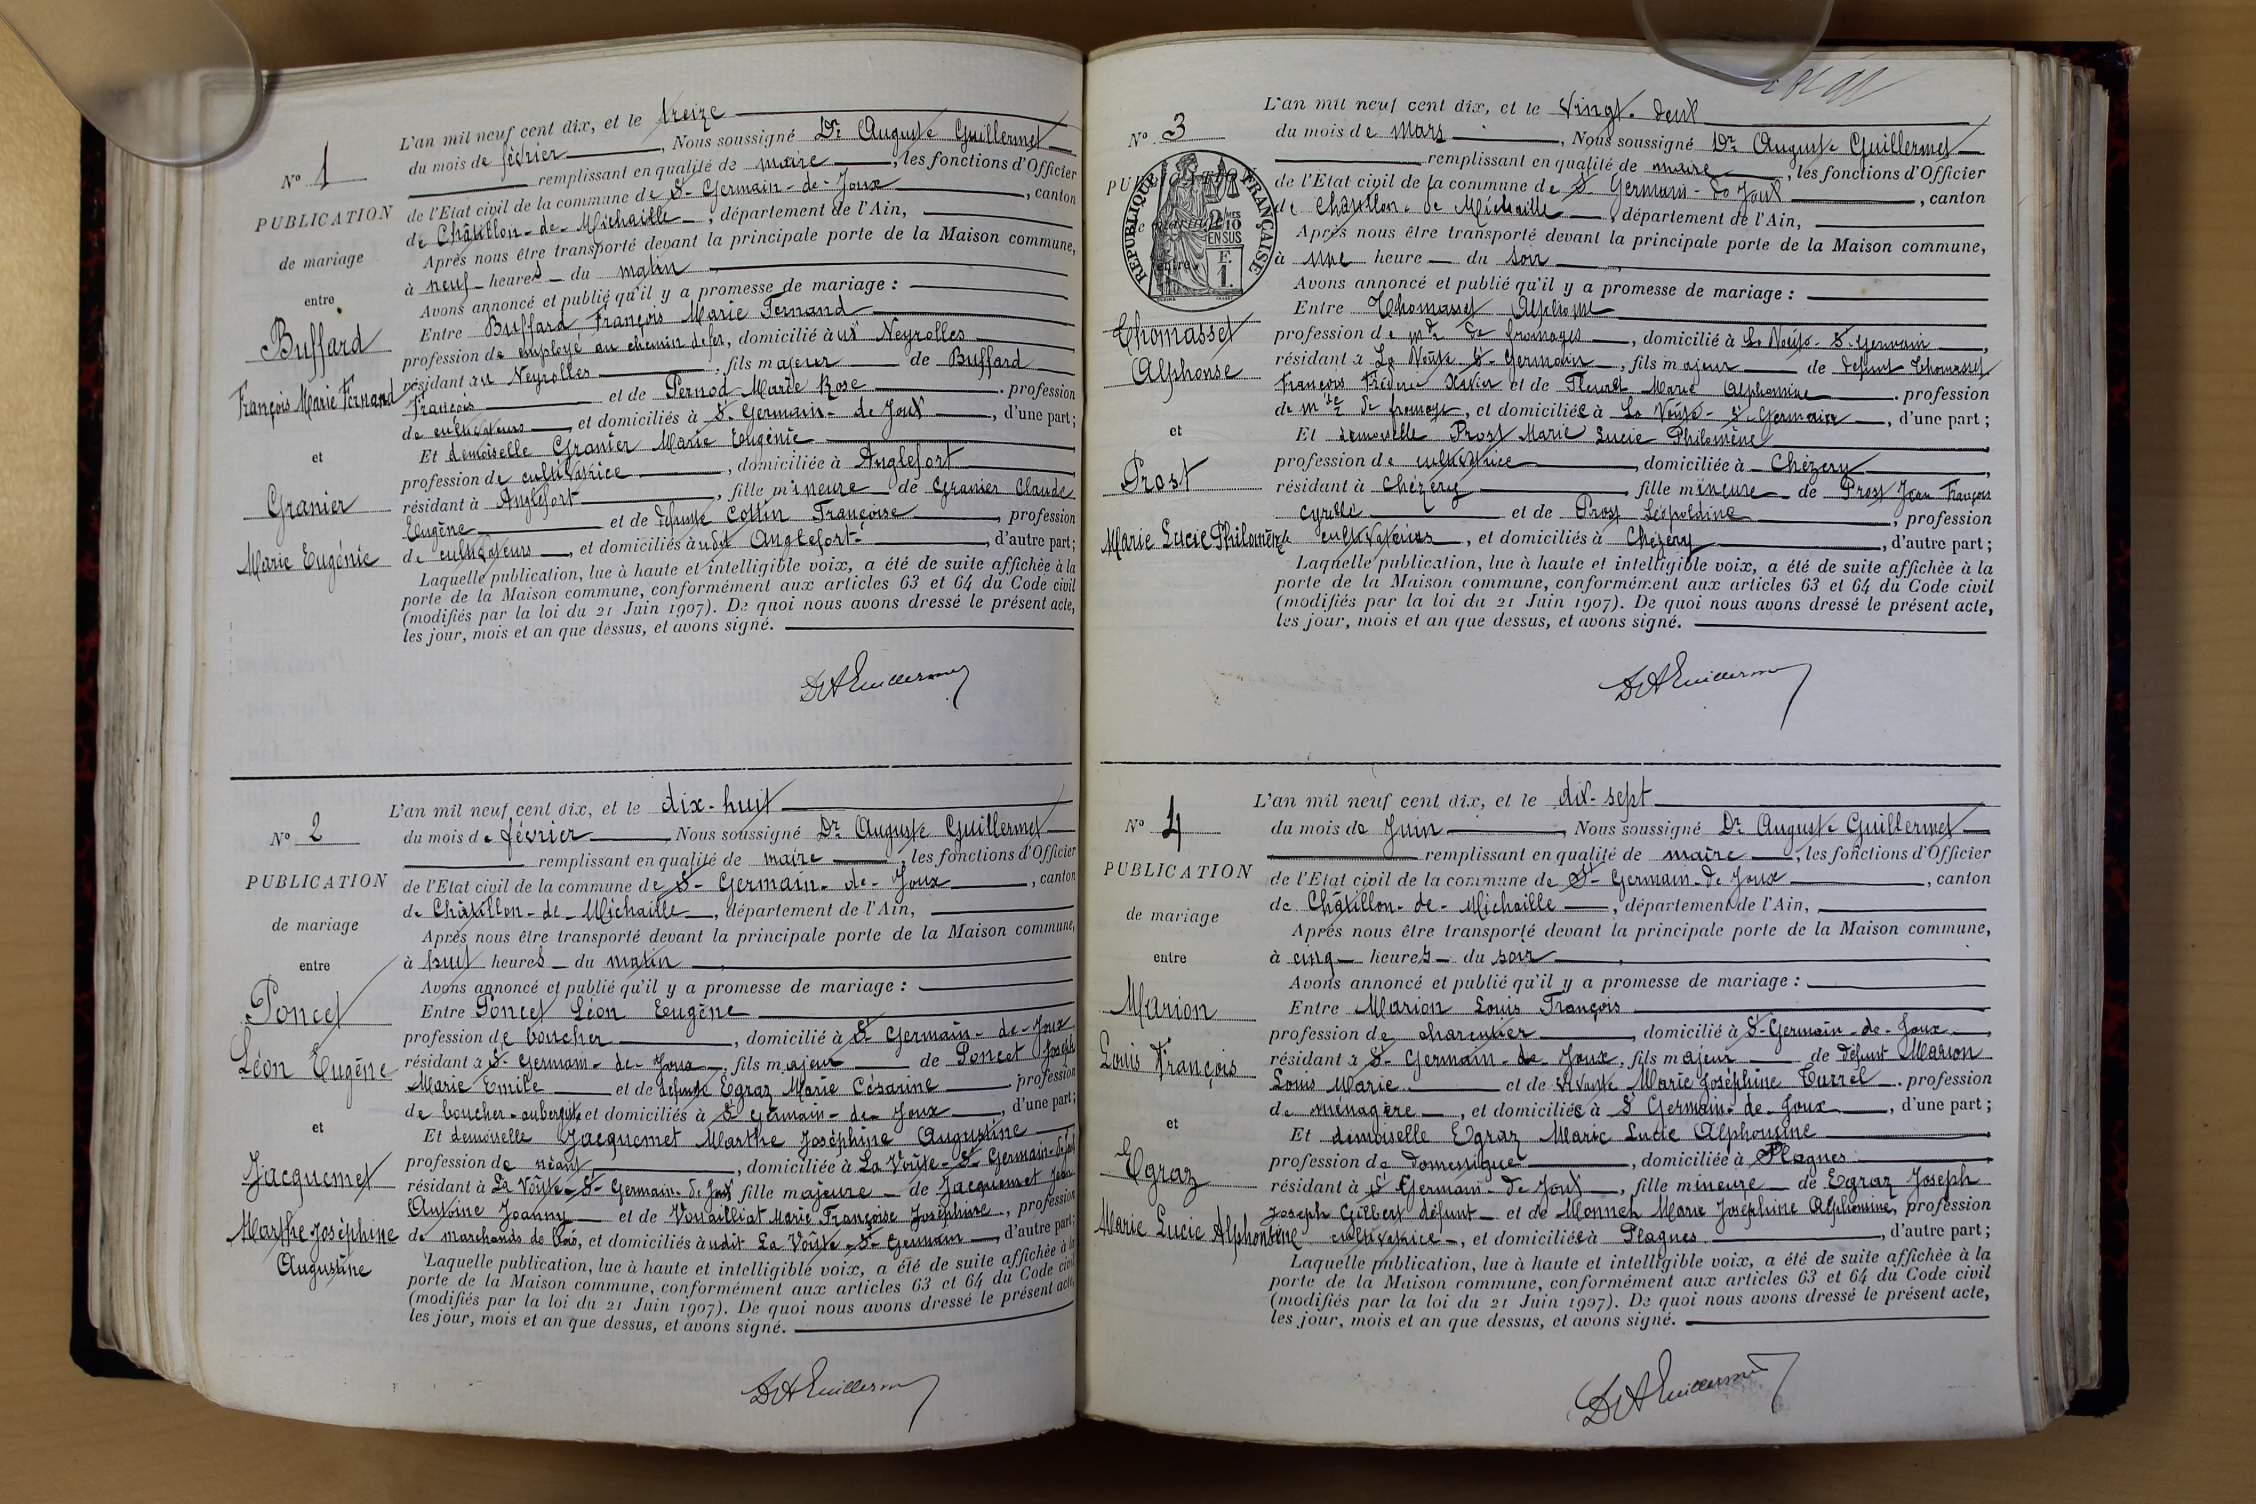 N° 1
PUBLICATION
de mariage
entre
Buffard
François Marie Fernand
et
Granier
Marie Eugénie
L'an mil neuf cent dix, et le treize
du mois de février, Nous soussigné Dr Auguste Guillermet
remplissant en qualité de maire, les fonctions d'Officier
de l'Etat civil de la commune de St-Germain-de-Joux, canton
de Châtillon-de-Michaille, département de l'Ain,
Après nous être transporté devant la principale porte de la Maison commune,
à neuf heures du matin
Avons annoncé et publié qu'il y a promesse de mariage :
Entre Buffard François Marie Fernand
profession de employé au chemin de fer, domicilié aux Neyrolles
résidant au Neyrolles, fils majeur de Buffard
François et de Pernod Marie Rose, profession
de cultivateurs, et domiciliés à St Germain-de Joux, d'une part;
Et demoiselle Granier Marie Eugénie
profession de cultivatrice, domiciliée à Anglefort
résidant à Anglefort, fille mineure de Granier Claude
Eugène et de défunte Cottin Françoise, profession
de cultivateurs, et domiciliés àudit Anglefort, d'autre part;
Laquelle publication, lue à haute et intelligible voix, a été de suite affichée à la
porte de la Maison commune, conformément aux articles 63 et 64 du Code civil
(modifiés par la loi du 21 Juin 1907). De quoi nous avons dressé le présent acte,
les jour, mois et an que dessus, et avons signé.
Dr A Guillermet
N° 2
PUBLICATION
de mariage
entre
Poncet
Léon Eugène
et
Jacquemet
Marthe Joséphine
Augustine
L'an mil neuf cent dix, et le dix-huit
du mois de février, Nous soussigné Dr Auguste Guillermet
remplissant en qualité de maire, les fonctions d'Officier
de l'Etat civil de la commune de St-Germain-de-Joux, canton
de Châtillon-de-Michaille, département de l'Ain,
Après nous être transporté devant la principale porte de la Maison commune,
à huit heures du matin
Avons annoncé et publié qu'il y a promesse de mariage :
Entre Poncet Léon Eugène
profession de boucher, domicilié à St Germain-de-Joux
résidant à St-Germain-de-Joux, fils majeur de Poncet Joseph
Marie Emile et de défunte Egraz Marie Césarine profession
de boucher-aubergiste et domiciliés à St Germain-de-Joux, d'une part;
Et demoiselle Jacquemet Marthe Joséphine Augustine
profession de néant, domiciliée à La Voûte-St-Germain-de-Joux
résidant à La Voûte-St-Germain-de Joux fille majeure de Jacquemet Jean
Antoine Joanny et de Vouailliat Marie Françoise Joséphine, profession
de marchands de bois, et domiciliés àudit La Voûte-St-Germain, d'autre part;
Laquelle publication, lue à haute et intelligible voix, a été de suite affichée à la
porte de la Maison commune, conformément aux articles 63 et 64 du Code civil
(modifiés par la loi du 21 Juin 1907). De quoi nous avons dressé le présent acte,
les jour, mois et an que dessus, et avons signé.
Dr A Guillermet
N° 3
RÉPUBLIQUE FRANÇAISE
2 MES
10
EN SUS
F.
1.
entre
Thomasset
Alphonse
et
Prost
Marie Lucie Philomène
L'an mil neuf cent dix, et le vingt-deux
du mois de mars, Nous soussigné Dr Auguste Guillermet
remplissant en qualité de maire, les fonctions d'Officier
de l'Etat civil de la commune de St-Germain-de Joux, canton
de Châtillon-de Michaille, département de l'Ain,
Après nous être transporté devant la principale porte de la Maison commune,
à une heure du soir
Avons annoncé et publié qu'il y a promesse de mariage :
Entre Thomasset Alphonse
profession de md de fromages, domicilié à La Voûte-St-Germain,
résidant à La Voûte St-Germain, fils majeur de défunt Thomasset
François Frédéric Xavier et de Fleuret Marie Alphonsine, profession
de mde de fromage, et domiciliée à La Voûte-St-Germain, d'une part;
Et demoiselle Prost Marie Lucie Philomène
profession de cultivatrice, domiciliée à Chézery,
résidant à Chézery, fille mineure de Prost Jean François
Cyrille et de Prost Léopoldine, profession
cultivateurs, et domiciliés à Chézery, d'autre part;
Laquelle publication, lue à haute et intelligible voix, a été de suite affichée à la
porte de la Maison commune, conformément aux articles 63 et 64 du Code civil
(modifiés par la loi du 21 Juin 1907). De quoi nous avons dressé le présent acte,
les jour, mois et an que dessus, et avons signé.
Dr A Guillermet
N° 4
PUBLICATION
de mariage
entre
Marion
Louis François
et
Egraz
Marie Lucie Alphonsine
L'an mil neuf cent dix, et le dix-sept
du mois de Juin, Nous soussigné Dr Auguste Guillermet
remplissant en qualité de maire, les fonctions d'Officier
de l'Etat civil de la commune de St-Germain-de Joux, canton
de Châtillon-de-Michaille, département de l'Ain,
Après nous être transporté devant la principale porte de la Maison commune,
à cinq heures du soir
Avons annoncé et publié qu'il y a promesse de mariage :
Entre Marion Louis François
profession de charcutier, domicilié à St-Germain-de-Joux,
résidant à St-Germain-de Joux, fils majeur de défunt Marion
Louis Marie et de vivante Marie Joséphine Turrel, profession
de ménagère, et domiciliée à St Germain-de-Joux, d'une part;
Et demoiselle Egraz Marie Lucie Alphonsine
profession de domestique, domiciliée à Plagnes
résidant à St Germain-de Joux, fille mineure de Egraz Joseph
Joseph Gilbert défunt et de Monnet Marie Joséphine Alphonsine, profession
cultivatrice, et domiciliée à Plagnes, d'autre part;
Laquelle publication, lue à haute et intelligible voix, a été de suite affichée à la
porte de la Maison commune, conformément aux articles 63 et 64 du Code civil
(modifiés par la loi du 21 Juin 1907). De quoi nous avons dressé le présent acte,
les jour, mois et an que dessus, et avons signé.
Dr A Guillermet